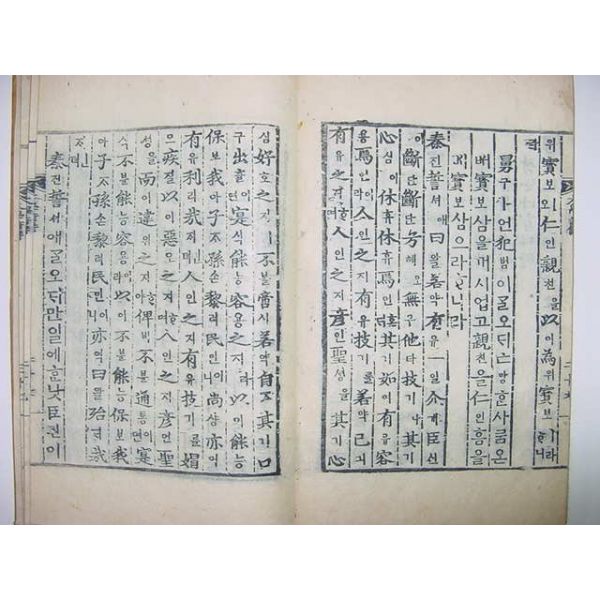 위寶보ㅣ오 仁인親친을 以이為위寶보ㅣ라 ᄒᆞ니라
舅구犯범이 ᄀᆞᆯ오ᄃᆡ 亡망ᄒᆞᆫ 사ᄅᆞᆷ은
ᄡᅥ 寶보 삼을 꺼시 업고 親친을 仁인홈을
ᄡᅥ 寶보 삼으라 ᄒᆞ니라
秦진誓셔애 曰왈若약有유一일介개臣신
이 斷단斷단兮혜오 無무他타技기나 其기
心심이 休휴休휴焉언 其기如여有유容
용焉언이라 人인之지有유技기를 若약己긔
有유之지ᄒᆞ며 人인之지彦언聖셩을 其기心
심好호之지 不불啻시若약自ᄌᆞ其기口
구出츌이면 寔식能능容용之지라 以이能능
保보我아子ᄌᆞ孫손黎려民민이니 尚샹亦역
有유利리哉ᄌᆡᆫ뎌 人인之지有유技기를 媢
모疾질以이惡오之지ᄒᆞ며 人인之지彦언聖
셩을 而이違위之지ᄒᆞ야 俾비不불通통이면 寔
식不불能능容용이라 以이不불能능保보我
아子ᄌᆞ孫손黎려民민이니 亦역曰왈殆ᄐᆡ哉
ᄌᆡᆫ뎌
秦진誓셔애 ᄀᆞᆯ오ᄃᆡ 만일에 ᄒᆞᆫ낫 臣신이